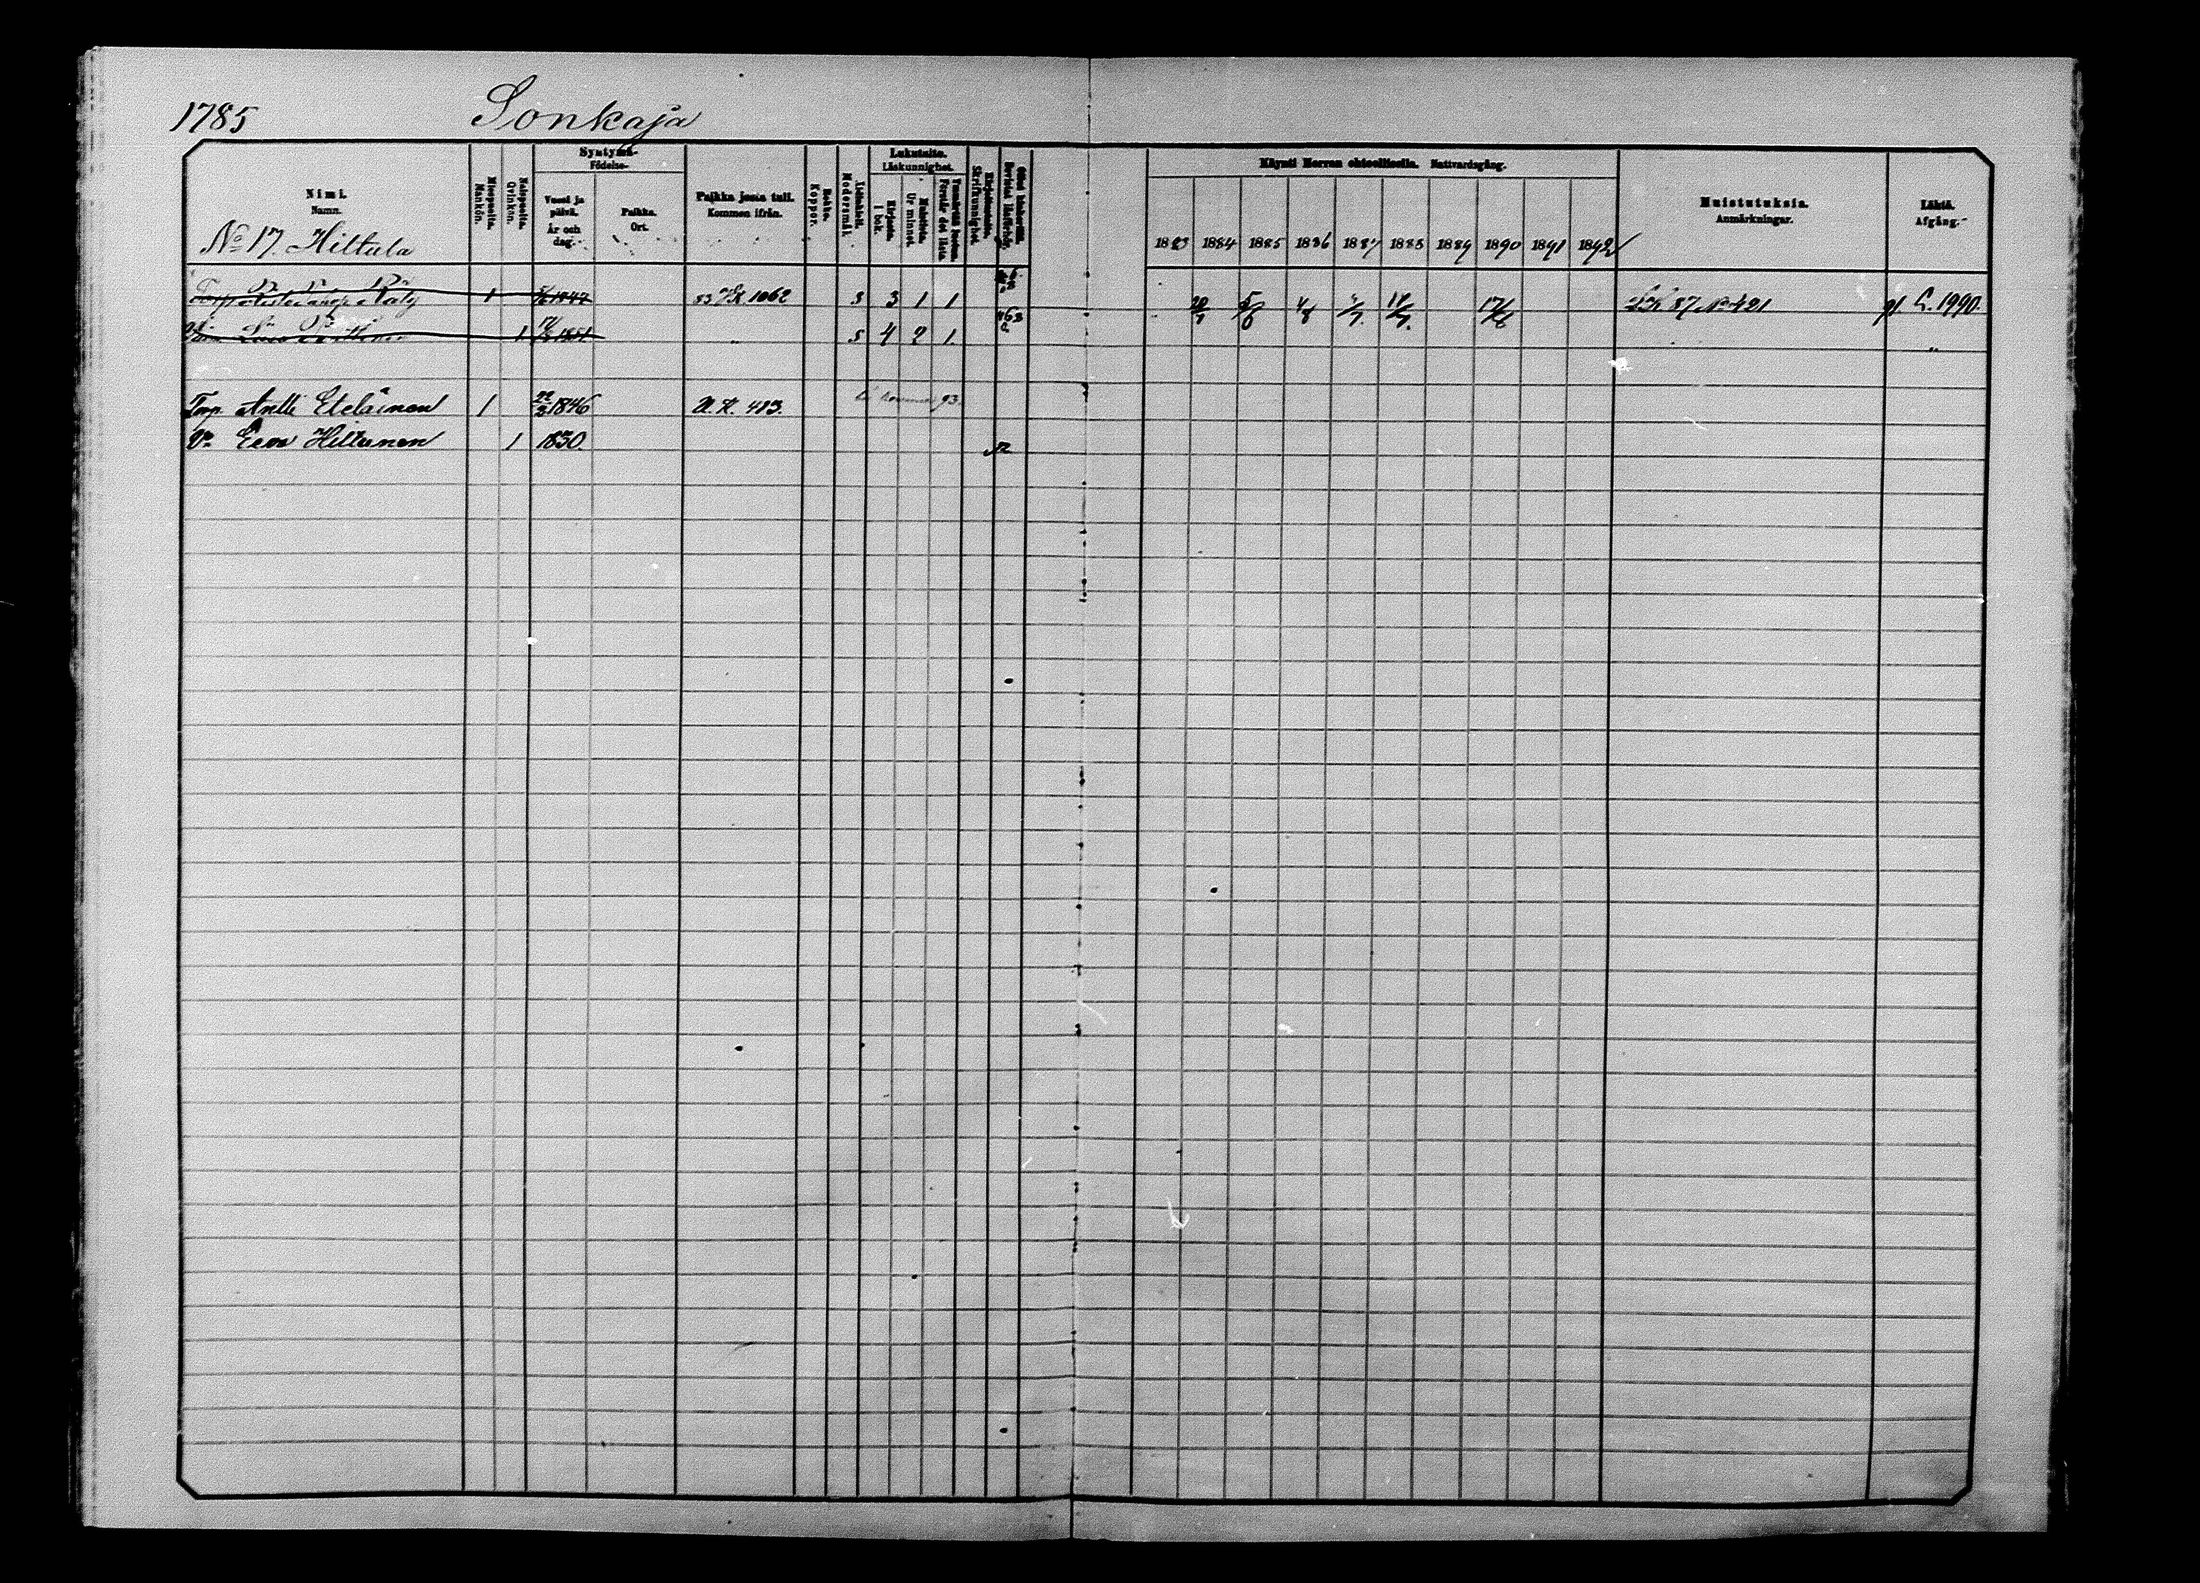 1785 Sonkaja
Nimi.
Namn.
Miespuolta.
Mankön.
Naispuolta.
Qvinkön.
Syntymä-
Födelse-
Vuosi ja päivä.
År och dag.
Paikka.
Ort.
Paikka josta tuli.
Kommen ifrån.
Rokko.
Koppor.
Modersmål.
Lukutaito.
Läskunnighet.
Kirjasta.
I bok.
Muistista.
Ur minnet.
Förstår det lästa
Kirjoitustaito.
Skrifkunnighet
Käynti Herran ehtoollisella. Nattvardsgång.
1883 1884 1885 1886 1887 1888 1889 1890 1891 1892
Muistutuksia.
Anmärkningar.
Lähtö.
Afgång.
No 17. Hiltula
1 1062 3 3 1 1 87 No 421 1990.
1 1851 4 2 1.
Torp. Antti Eteläinen 1 22/3 1846 483. 93.
Va Eeva Hiltunen 1 1830.